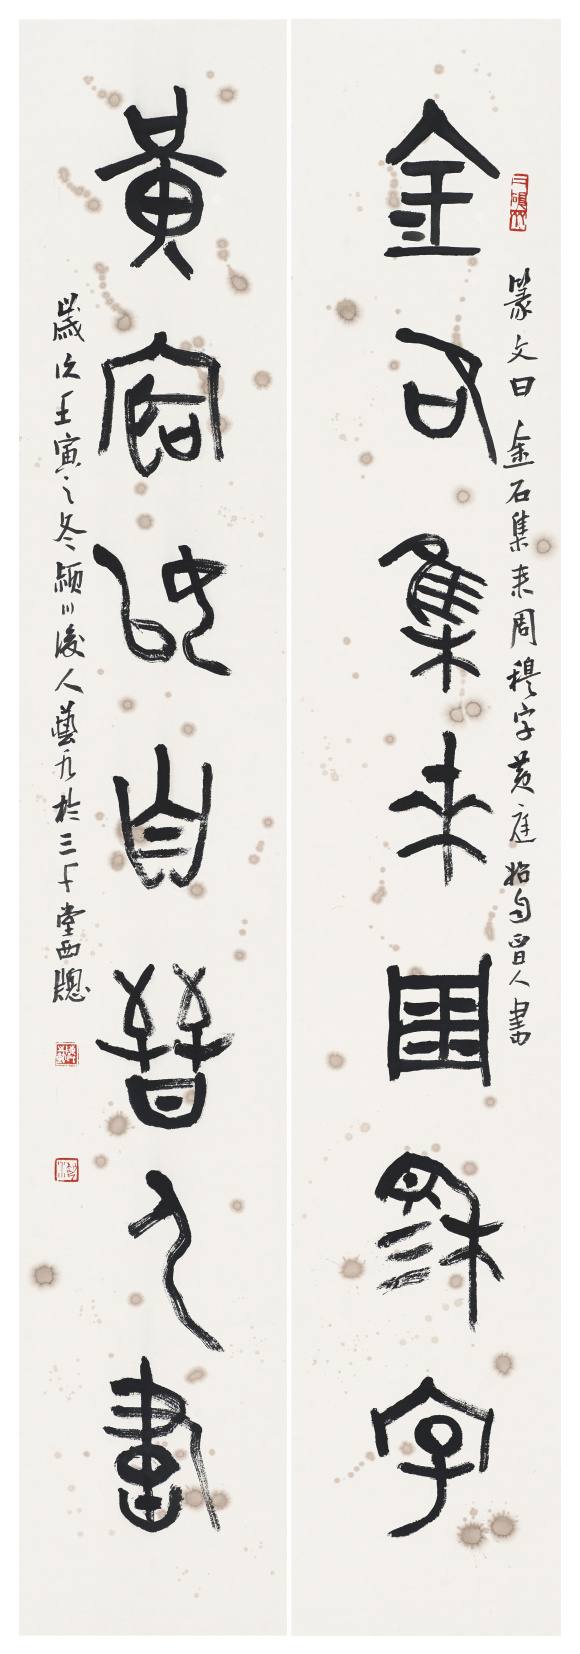 篆文曰 金石集来周穆字 黄庭始自晋人書
金石集来周穆字
黃庭始自晉人書
歲次壬寅之冬潁川後人藝九於三千堂西牕